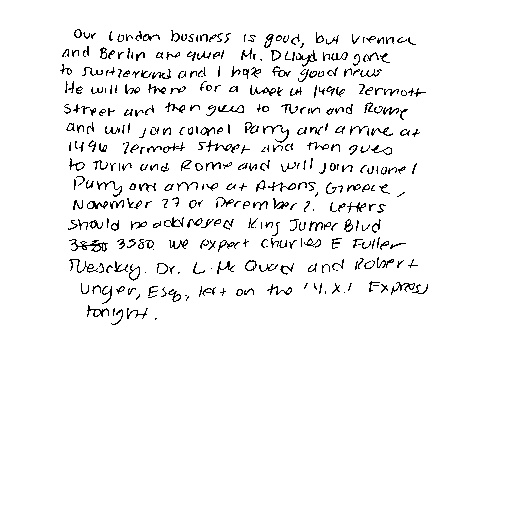 Our London business is good, but Vienna
and Berlin are quiet. Mr. D Lloyd has gone
to Switzerland and I hope for good news
He will be there for a week at 1496 Zermott
street and then goes to Turin and Rome
and will join colonel Parry and arrive at
1496 Zermott street and then goes
to Turin and Rome and will join colonel
Parry and arrive at Athens, Greece,
November 27 or December 2. Letters
should be addressed King James Blvd
3580 We expect Charles E Fuller
Tuesday. Dr. L. Mc Quad and Robert
Unger, Esq., left on the 'Y.X.' Express
tonight.